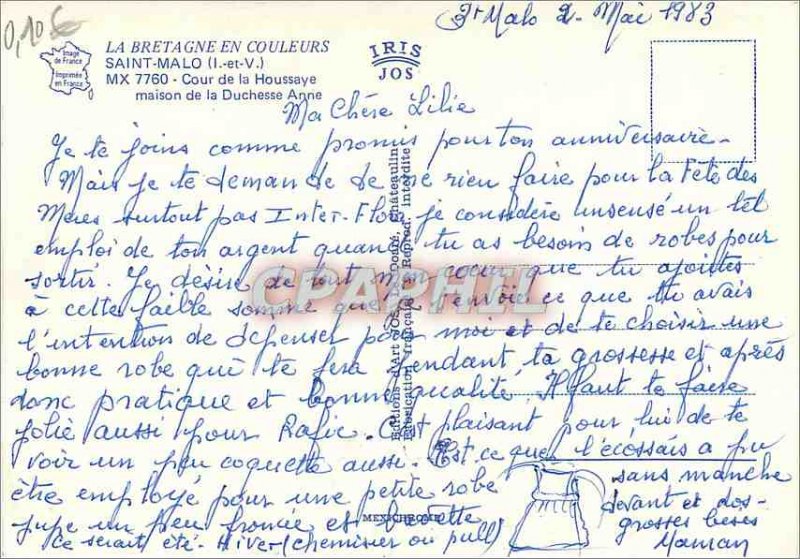 0,10€
St Malo 2. Mai 1983
Image de France
Imprimée en France
LA BRETAGNE EN COULEURS
SAINT-MALO (I.-et-V.)
MX 7760 - Cour de la Houssaye
maison de la Duchesse Anne
IRIS
JOS
Ma Chère Lilie
Je te joins comme promis pour ton anniversaire -
Mais je te demande de ne rien faire pour la Fête des
Mères surtout pas Inter-Flora, je considère insensé un tel
emploi de ton argent quand tu as besoin de robes pour
sortir. Je désire de tout mon cœur que tu ajoutes
à cette faible somme que je t'envoie ce que tu avais
l'intention de dépenser pour moi et de te choisir une
bonne robe qui te fera pendant ta grossesse et après
donc pratique et bonne qualité. Il faut te faire
jolie aussi pour Rafic. C'est plaisant pour lui de te
voir un peu coquette aussi. Est-ce que l'écossais a pu
être employé pour une petite robe sans manche
jupe un peu froncée et devant et dos -
ce serait été - Hiver (chemisier ou pull)
grosses bises
Maman
Editions d'Art JOS Le Doaré, Châteaulin
Fabrication française - Reprod. Interdite
MEXICHROME
CPAPHIL